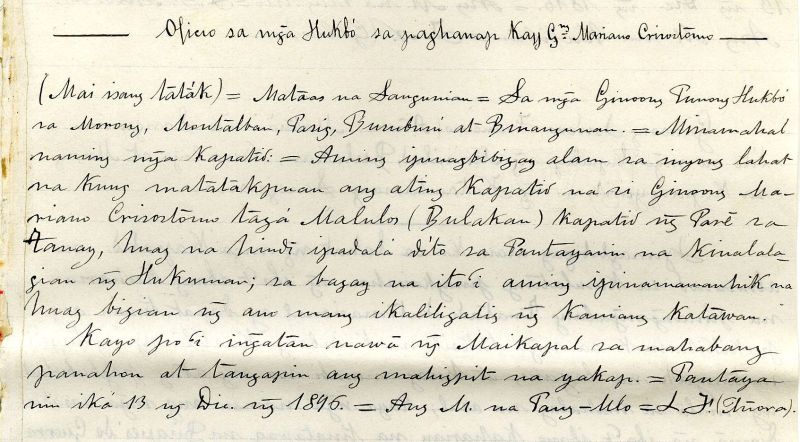 Oficio sa mḡa Hukbó sa paghanap kay Gn̄ Mariano Crisostomo
(Mai isang tàták) = Mataas na Sangunian = Sa mḡa Ginoong Punong Hukbó
sa Morong, Montalban, Pasig, at Binangunan. = Minamahal
naming mḡa Kapatid: = Aming ipinagbibigay alam sa inyong lahat
na kung matatakpuan ang ating Kapatid na si Ginoong Ma-
riano Crisostomo tagá Malulos (Bulakan) Kapatid n͠g Parē sa
Tanay, huag na hindî ipadalá dito sa Pantayanin na kinalala-
gian n͠g Hukuman; sa bagay na ito'i aming ipinamamanhik na
huag bigian n͠g ano mang ikaliligalig n͠g kaniang katawan.
Kayo po'i ingatan nawā n͠g Maikapal sa mahabang
panahon at tangapin ang mahigpit na yakap. = Pantaya
nin iká 13 ng Dic. n͠g 1896. = Ang M. na Pang-Ulo = L. J.